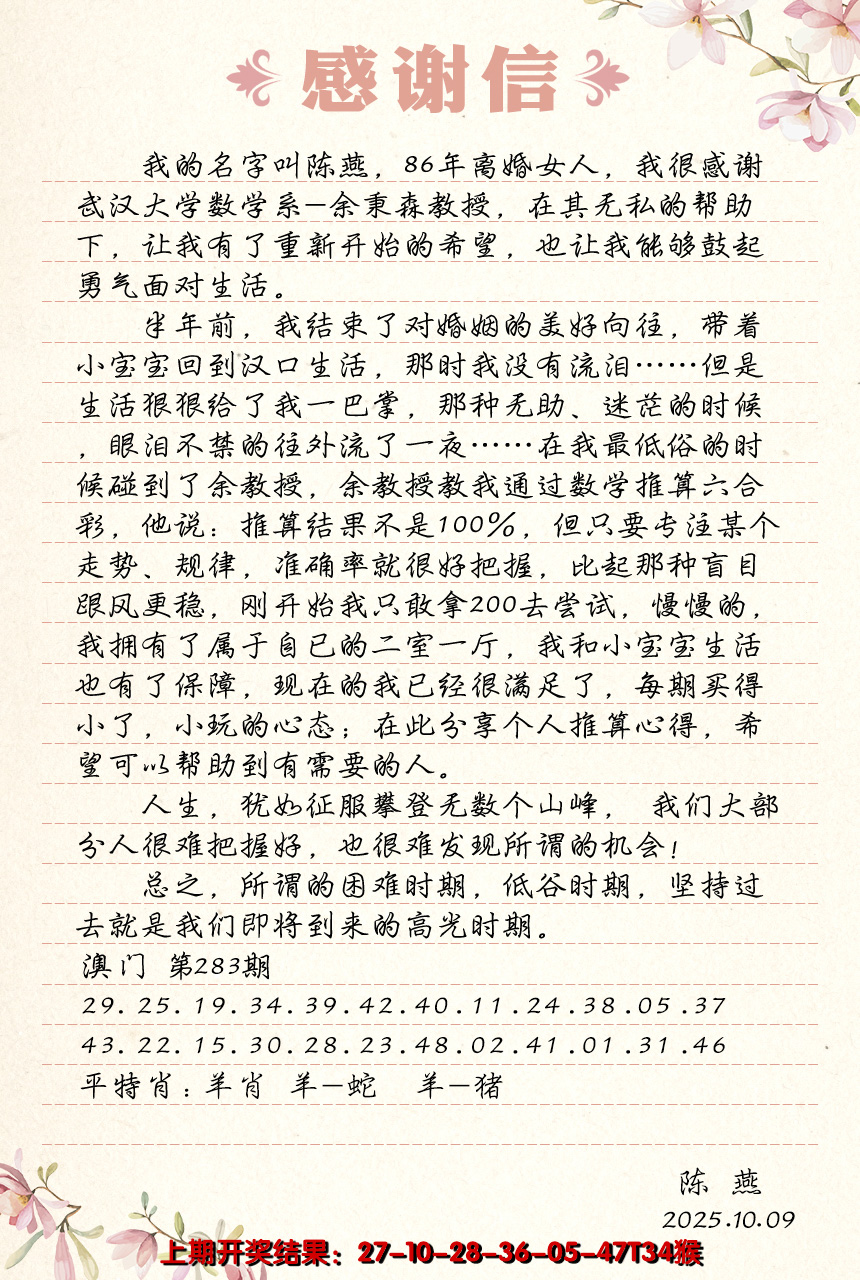 感谢信
我的名字叫陈燕，86年离婚女人，我很感谢
武汉大学数学系—余秉森教授，在其无私的帮助
下，让我有了重新开始的希望，也让我能够鼓起
勇气面对生活。
半年前，我结束了对婚姻的美好向往，带着
小宝宝回到汉口生活，那时我没有流泪……但是
生活狠狠给了我一巴掌，那种无助、迷茫的时候
，眼泪不禁的往外流了一夜……在我最低俗的时
候碰到了余教授，余教授教我通过数学推算六合
彩，他说：推算结果不是100%，但只要专注某个
走势、规律，准确率就很好把握，比起那种盲目
跟风更稳，刚开始我只敢拿200去尝试，慢慢的，
我拥有了属于自已的二室一厅，我和小宝宝生活
也有了保障，现在的我已经很满足了，每期买得
小了，小玩的心态；在此分享个人推算心得，希
望可以帮助到有需要的人。
人生，犹如征服攀登无数个山峰， 我们大部
分人很难把握好，也很难发现所谓的机会！
总之，所谓的困难时期，低谷时期，坚持过
去就是我们即将到来的高光时期。
澳门 第283期
29.25.19.34.39.42.40.11.24.38.05.37
43.22.15.30.28.23.48.02.41.01.31.46
平特肖：羊肖 羊—蛇 羊—猪
陈 燕
2025.10.09
上期开奖结果：27-10-28-36-05-47T34猴